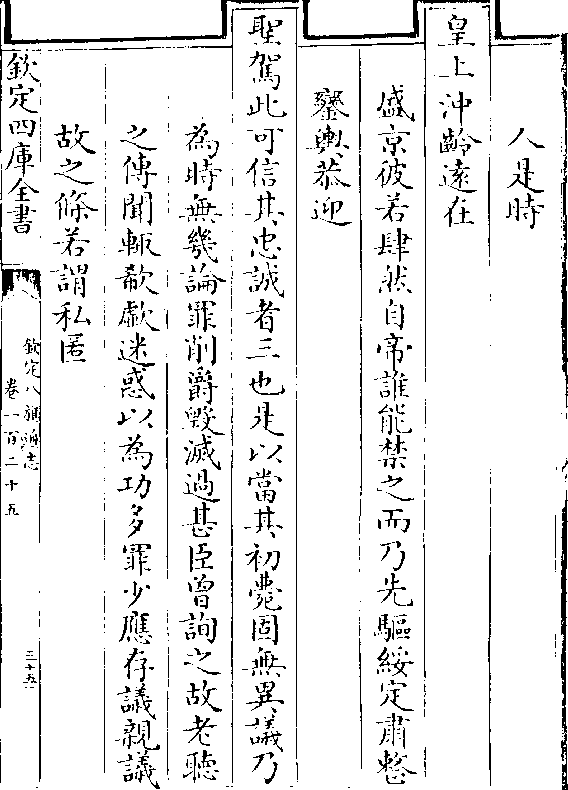 人是時
皇上沖齡遠在
盛京彼若肆然自帝誰能禁之而乃先驅綏定肅整
鑾輿恭迎
聖駕此可信其忠誠者三也是以當其初薨固無異議乃
為時無幾論罪削爵毀滅過甚臣曾詢之故老聽
之傳聞輙欷歔迷惑以為功多罪少應存議親議
故之條若謂私匿
欽定四庫全書
欽定八旗通志
卷一百二十五
三十五